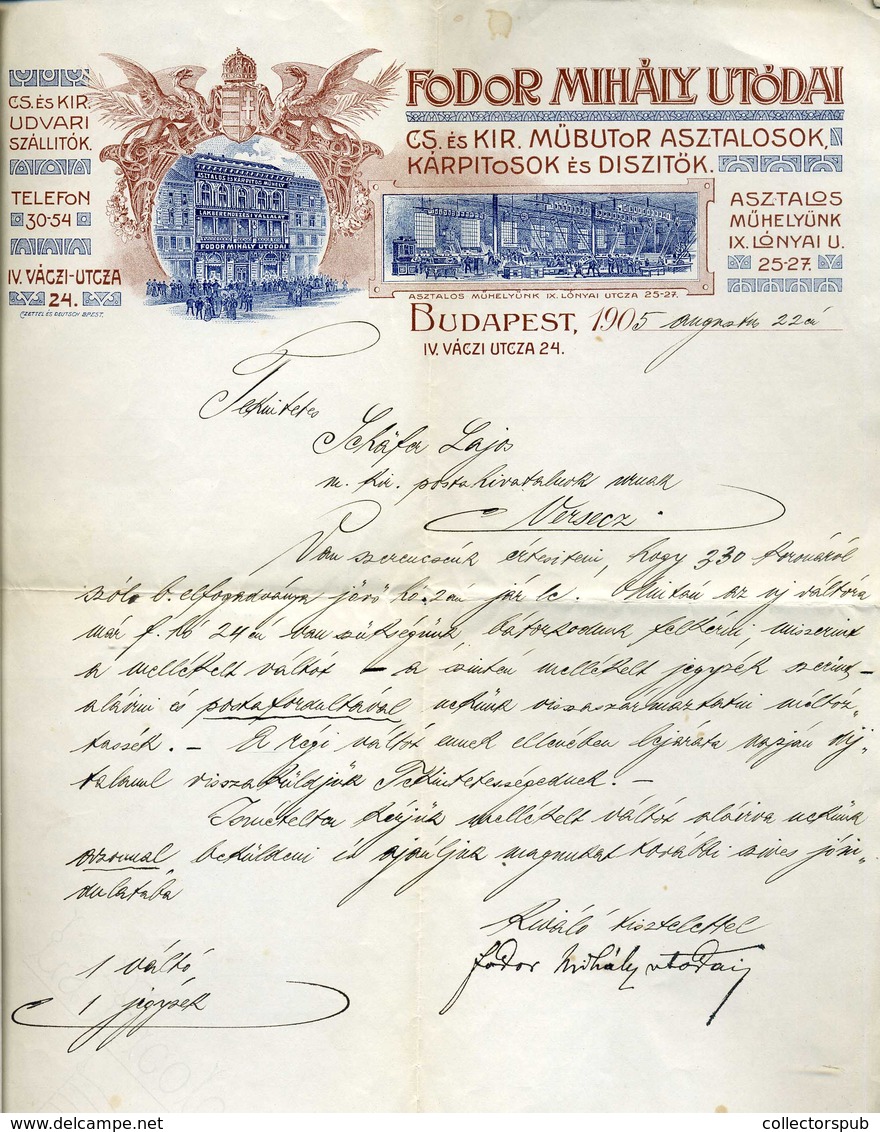 FODOR MIHÁLY UTÓDAI
CS. ÉS KIR.
UDVARI
SZÁLLITÓK.
CS. ÉS KIR. MŰBUTOR ASZTALOSOK,
KÁRPITOSOK ÉS DISZITŐK.
TELEFON
30-54
IV. VÁCZI-UTCZA
24.
CZETTEL ÉS DEUTSCH BPEST.
LAKBERENDEZÉSI VÁLLALAT
FODOR MIHÁLY UTÓDAI
ASZTALOS MŰHELYÜNK IX. LÓNYAI UTCZA 25-27.
ASZTALOS
MŰHELYÜNK
IX. LÓNYAI U.
25-27.
BUDAPEST, 1905 augusztus 22én
IV. VÁCZI UTCZA 24.
Tekintetes
Schäfer Lajos
m. kir. postahivatalnok urnak
Versecz.
Van szerencsénk értesiteni, hogy 230 koronáról
szóló b. elfogadványa jövő hó 2án jár le. Miután az uj váltóra
már f. hó 24én van szükségünk bátorkodunk felkérni, miszerint
a mellékelt váltót – a szintén mellékelt jegyzék szerint –
aláirni és postafordultával nekünk visszaszármaztatni méltóz-
tassék. – A régi váltót ennek ellenében lejárata napján díj-
talanul visszaküldjük Tekintetességednek. –
Ismételten kérjük mellékelt váltót aláirva nekünk
azonnal beküldeni és ajánljuk magunkat további szives jóin-
dulatába
Kiváló tisztelettel
Fodor Mihály utódai
1 váltó
1 jegyzék
www.delcampe.net
collectorspub